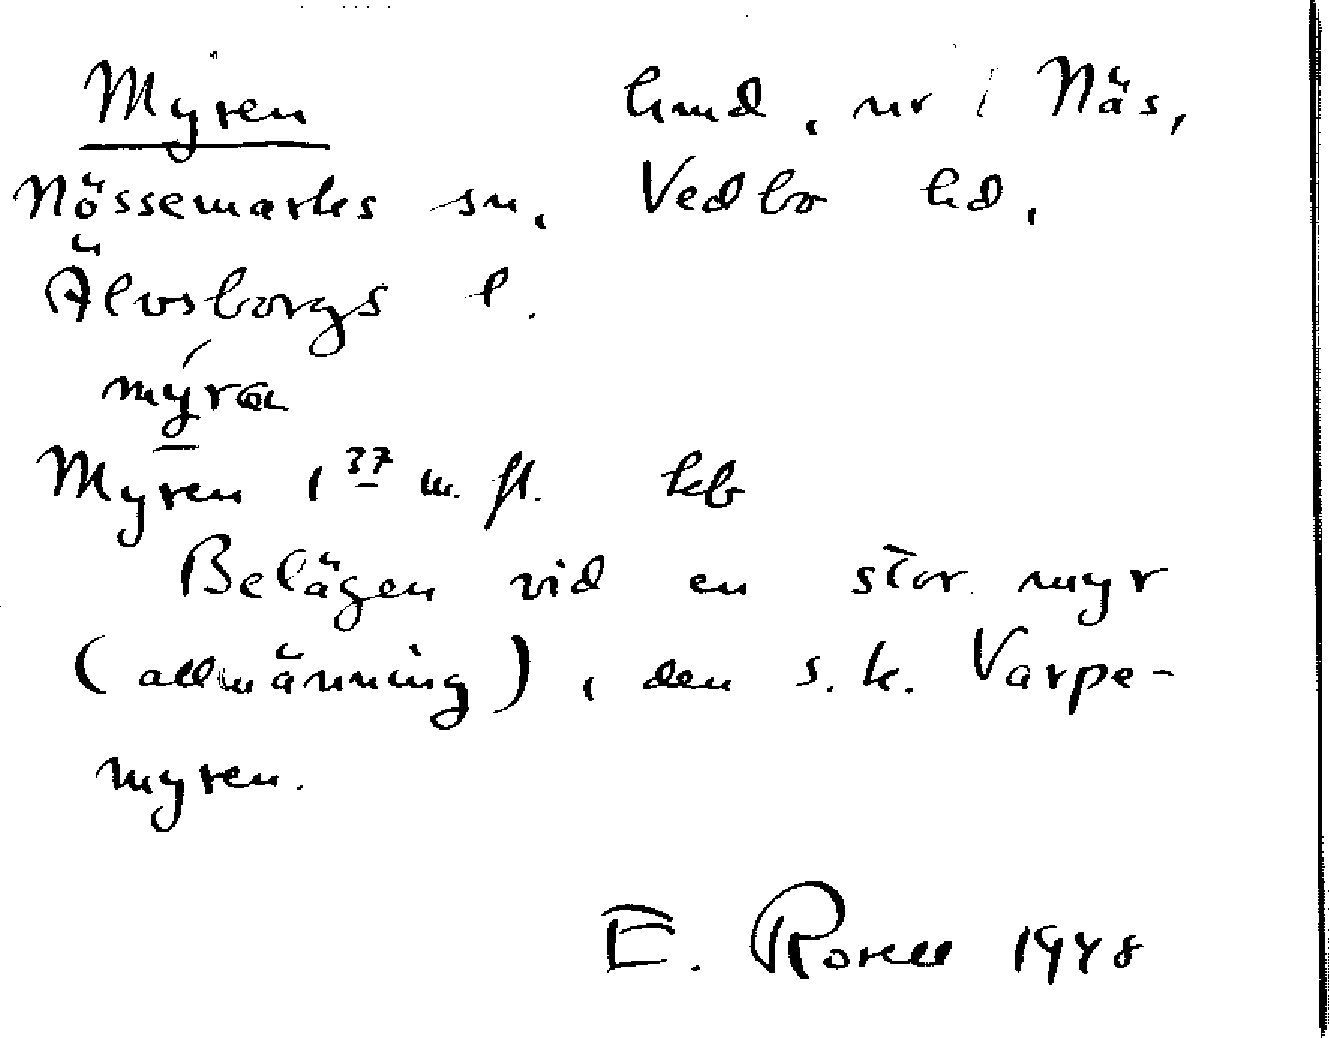 Myren hmd, nr i Näs,
Nössemarks sn, Vedbo hd,
Älvsborgs l.
mýrən
Myren 1 37 m. fl. kb
Belägen vid en stor myr
(allmänning), den s.k. Varpe-
myren.
E. Rorell 1948